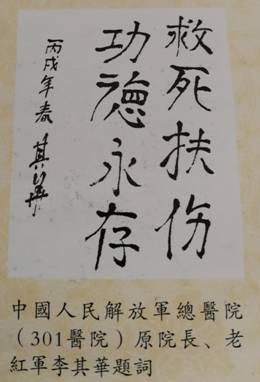 救死扶伤
功德永存
丙戌年春
其华
中國人民解放軍總醫院
（301醫院）原院長、老
紅軍李其華題詞